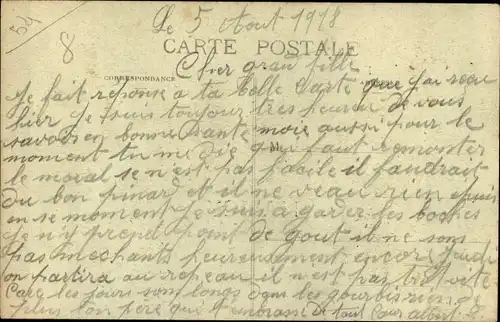 Le 5 Aout 1918
54
8
CARTE POSTALE
Cher grand fille
CORRESPONDANCE
Je fait reponse a ta belle carte que j'ai recu
hier je suis toujour tres heureu de vous
savoir en bonne sante moi aussi pour le
moment tu me die qu'il faut remonter
le moral se n'est pas facile il faudrait
du bon pinard et il ne veau rien puis
en se moment je suis a garder les boches
je n'y prend point de gout il ne sont
pas mechants heureusement encore jeudi
on partira au repeau il n'est pas trop vite
Care les jours sont longs dans les gourbis
plus ton pere que t'embrasse de tout Cour albert